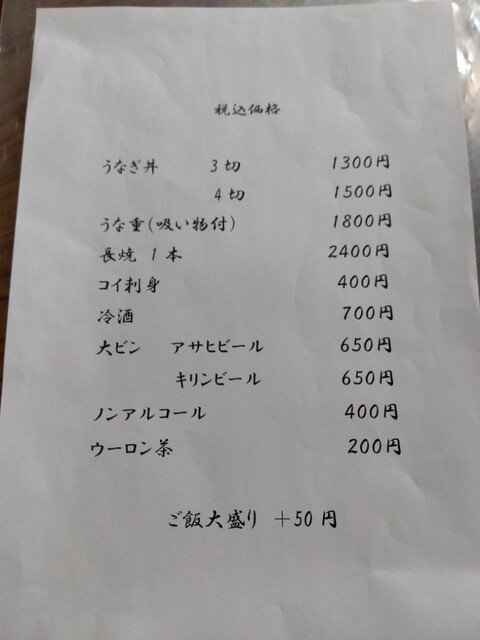 税込価格
うなぎ丼 3切 1300円
4切 1500円
うな重(吸い物付) 1800円
長焼 1本 2400円
コイ刺身 400円
冷酒 700円
大ビン アサヒビール 650円
キリンビール 650円
ノンアルコール 400円
ウーロン茶 200円
ご飯大盛り +50円